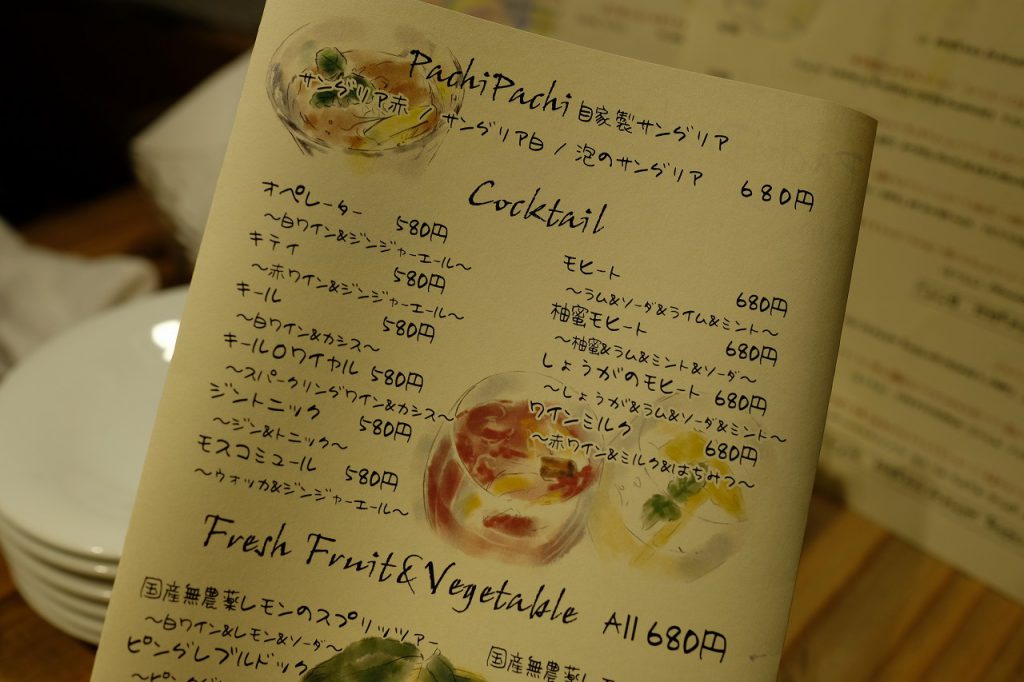 PachiPachi 自家製サングリア
サングリア赤 / サングリア白 / 泡のサングリア 680円
Cocktail
オペレーター 580円
〜白ワイン&ジンジャーエール〜
キティ 580円
〜赤ワイン&ジンジャーエール〜
キール 580円
〜白ワイン&カシス〜
キールロワイヤル 580円
〜スパークリングワイン&カシス〜
ジントニック 580円
〜ジン&トニック〜
モスコミュール 580円
〜ウォッカ&ジンジャーエール〜
モヒート 680円
〜ラム&ソーダ&ライム&ミント〜
柚蜜モヒート 680円
〜柚蜜&ラム&ミント&ソーダ〜
しょうがのモヒート 680円
〜しょうが&ラム&ソーダ&ミント〜
ワインミルク 680円
〜赤ワイン&ミルク&はちみつ〜
Fresh Fruit&Vegetable All 680円
国産無農薬レモンのスプリッツァー
〜白ワイン&レモン&ソーダ〜
ピングレブルドック
国産無農薬レ